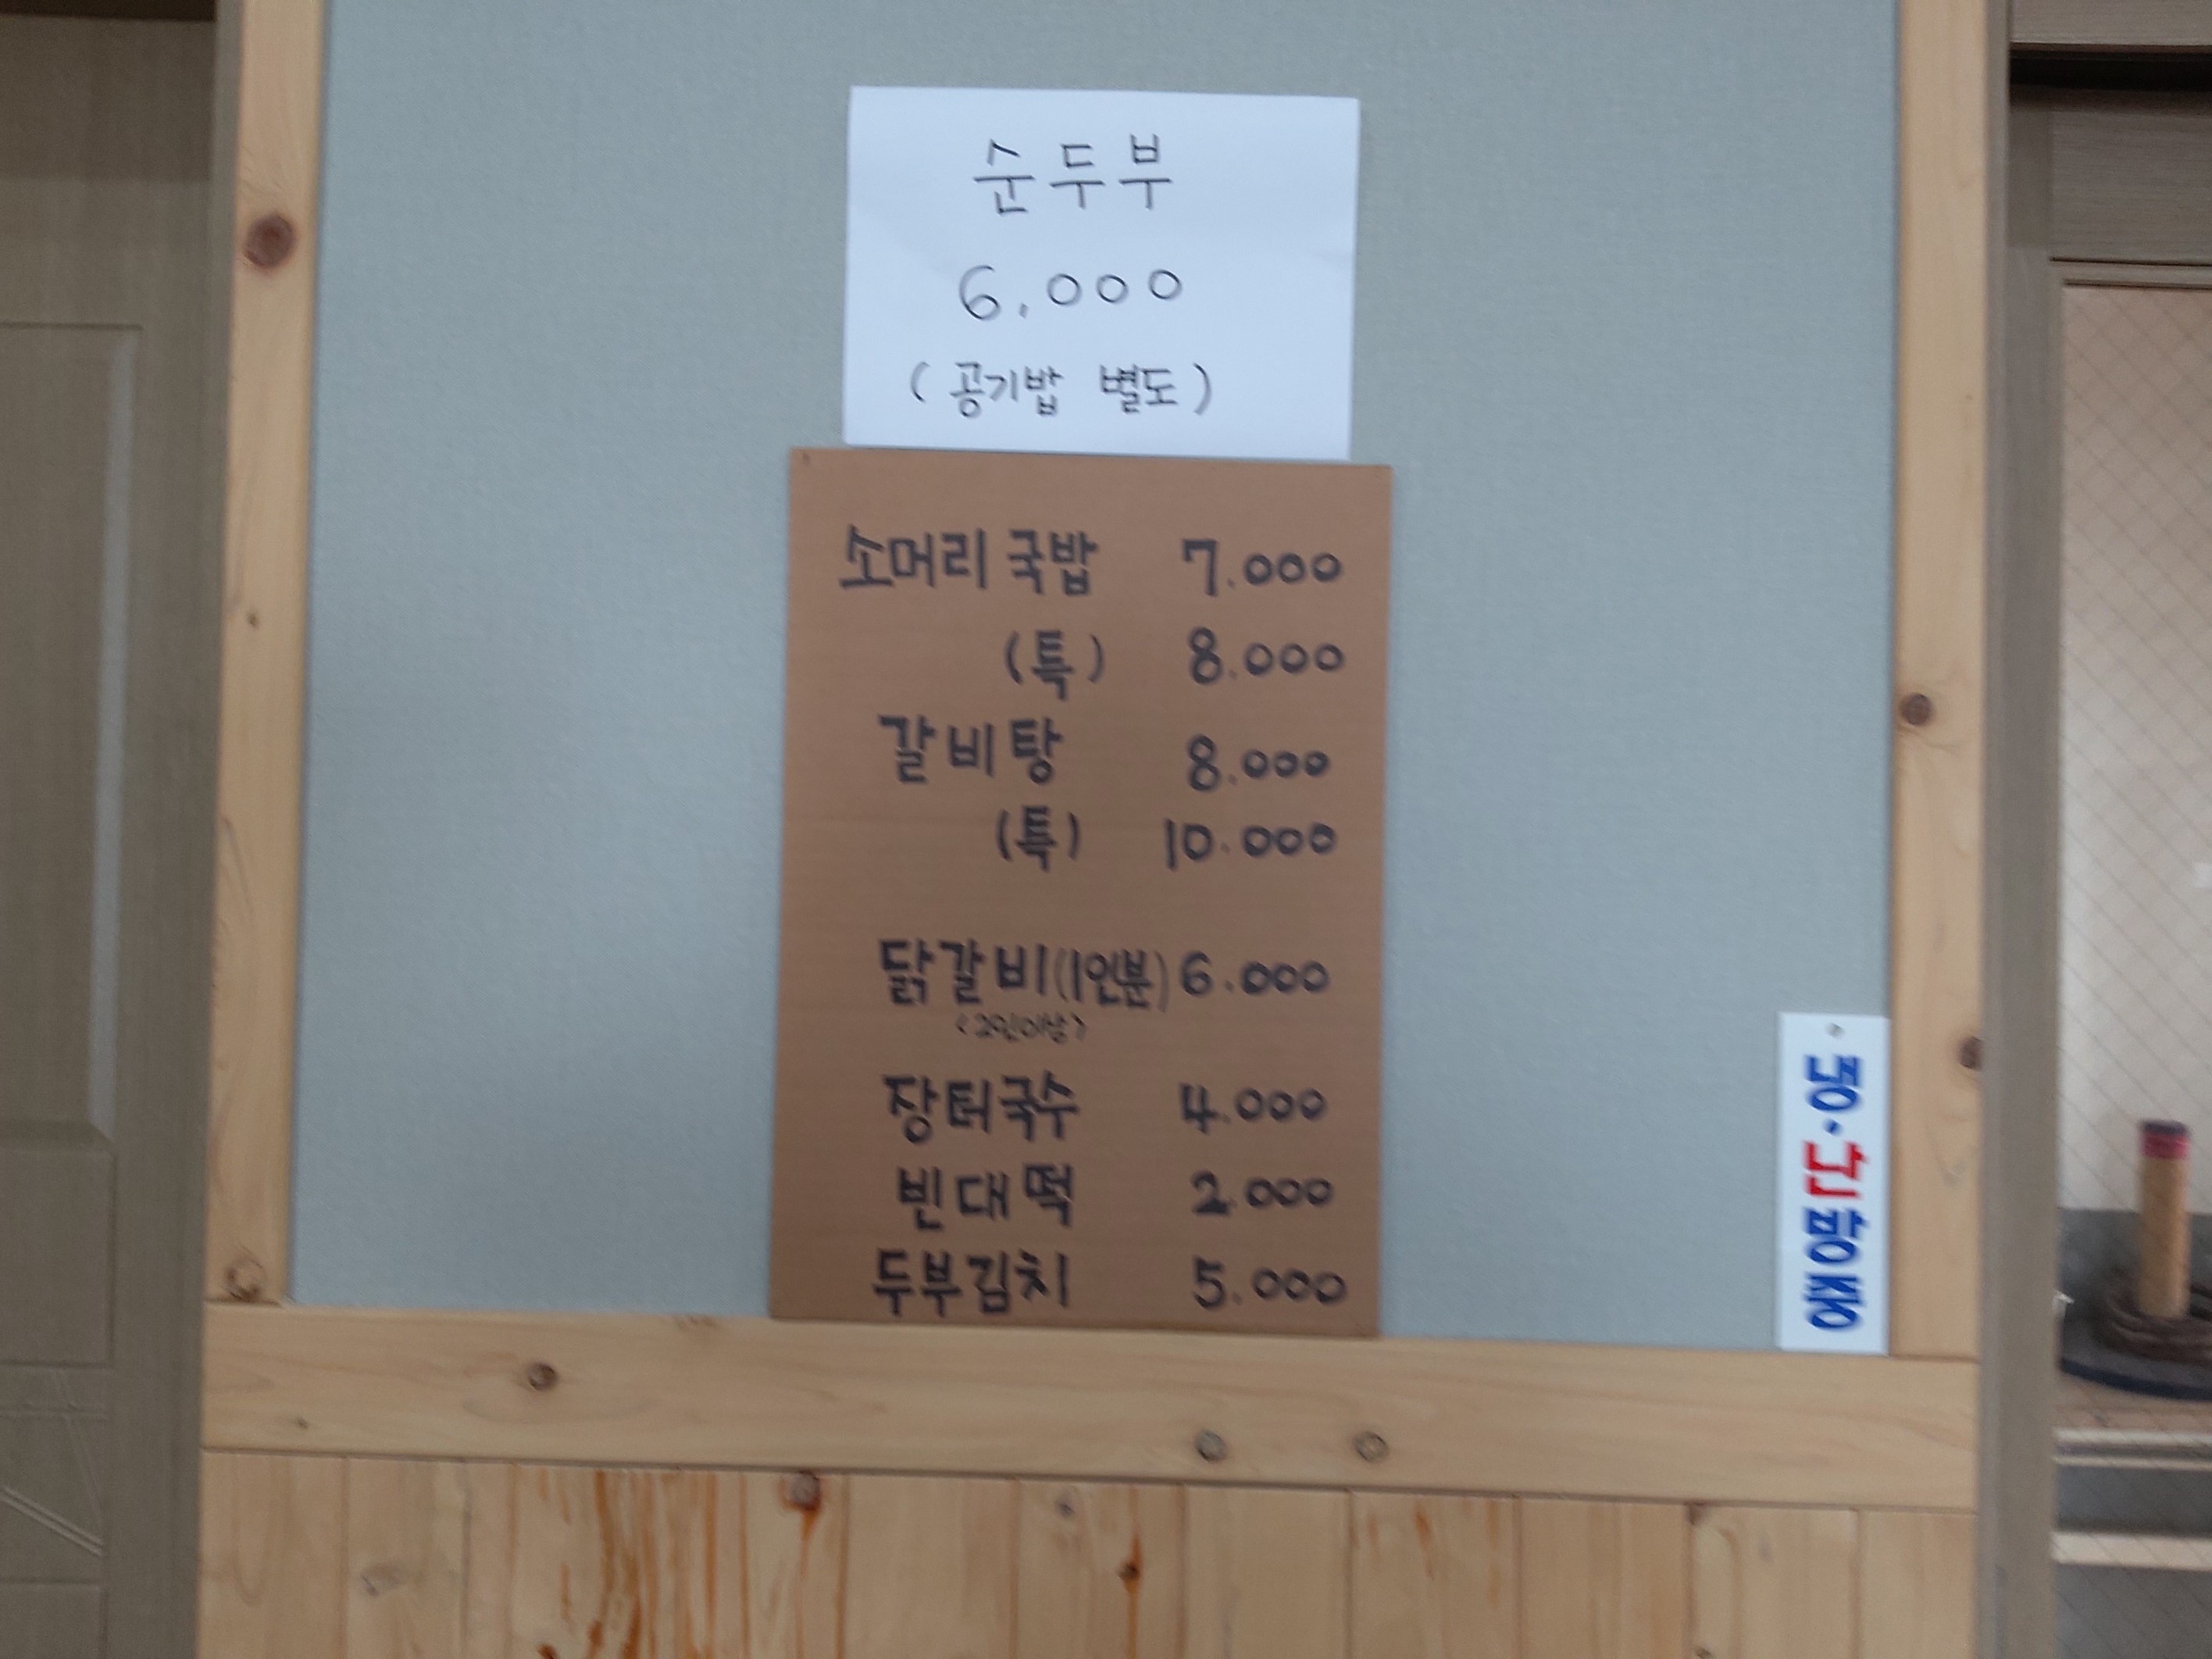 순두부
6,000
(공기밥 별도)
소머리국밥 7.000
(특) 8.000
갈비탕 8.000
(특) 10.000
닭갈비(1인분) 6.000
(2인이상)
장터국수 4.000
빈대떡 2.000
두부김치 5.000
냉·난방중